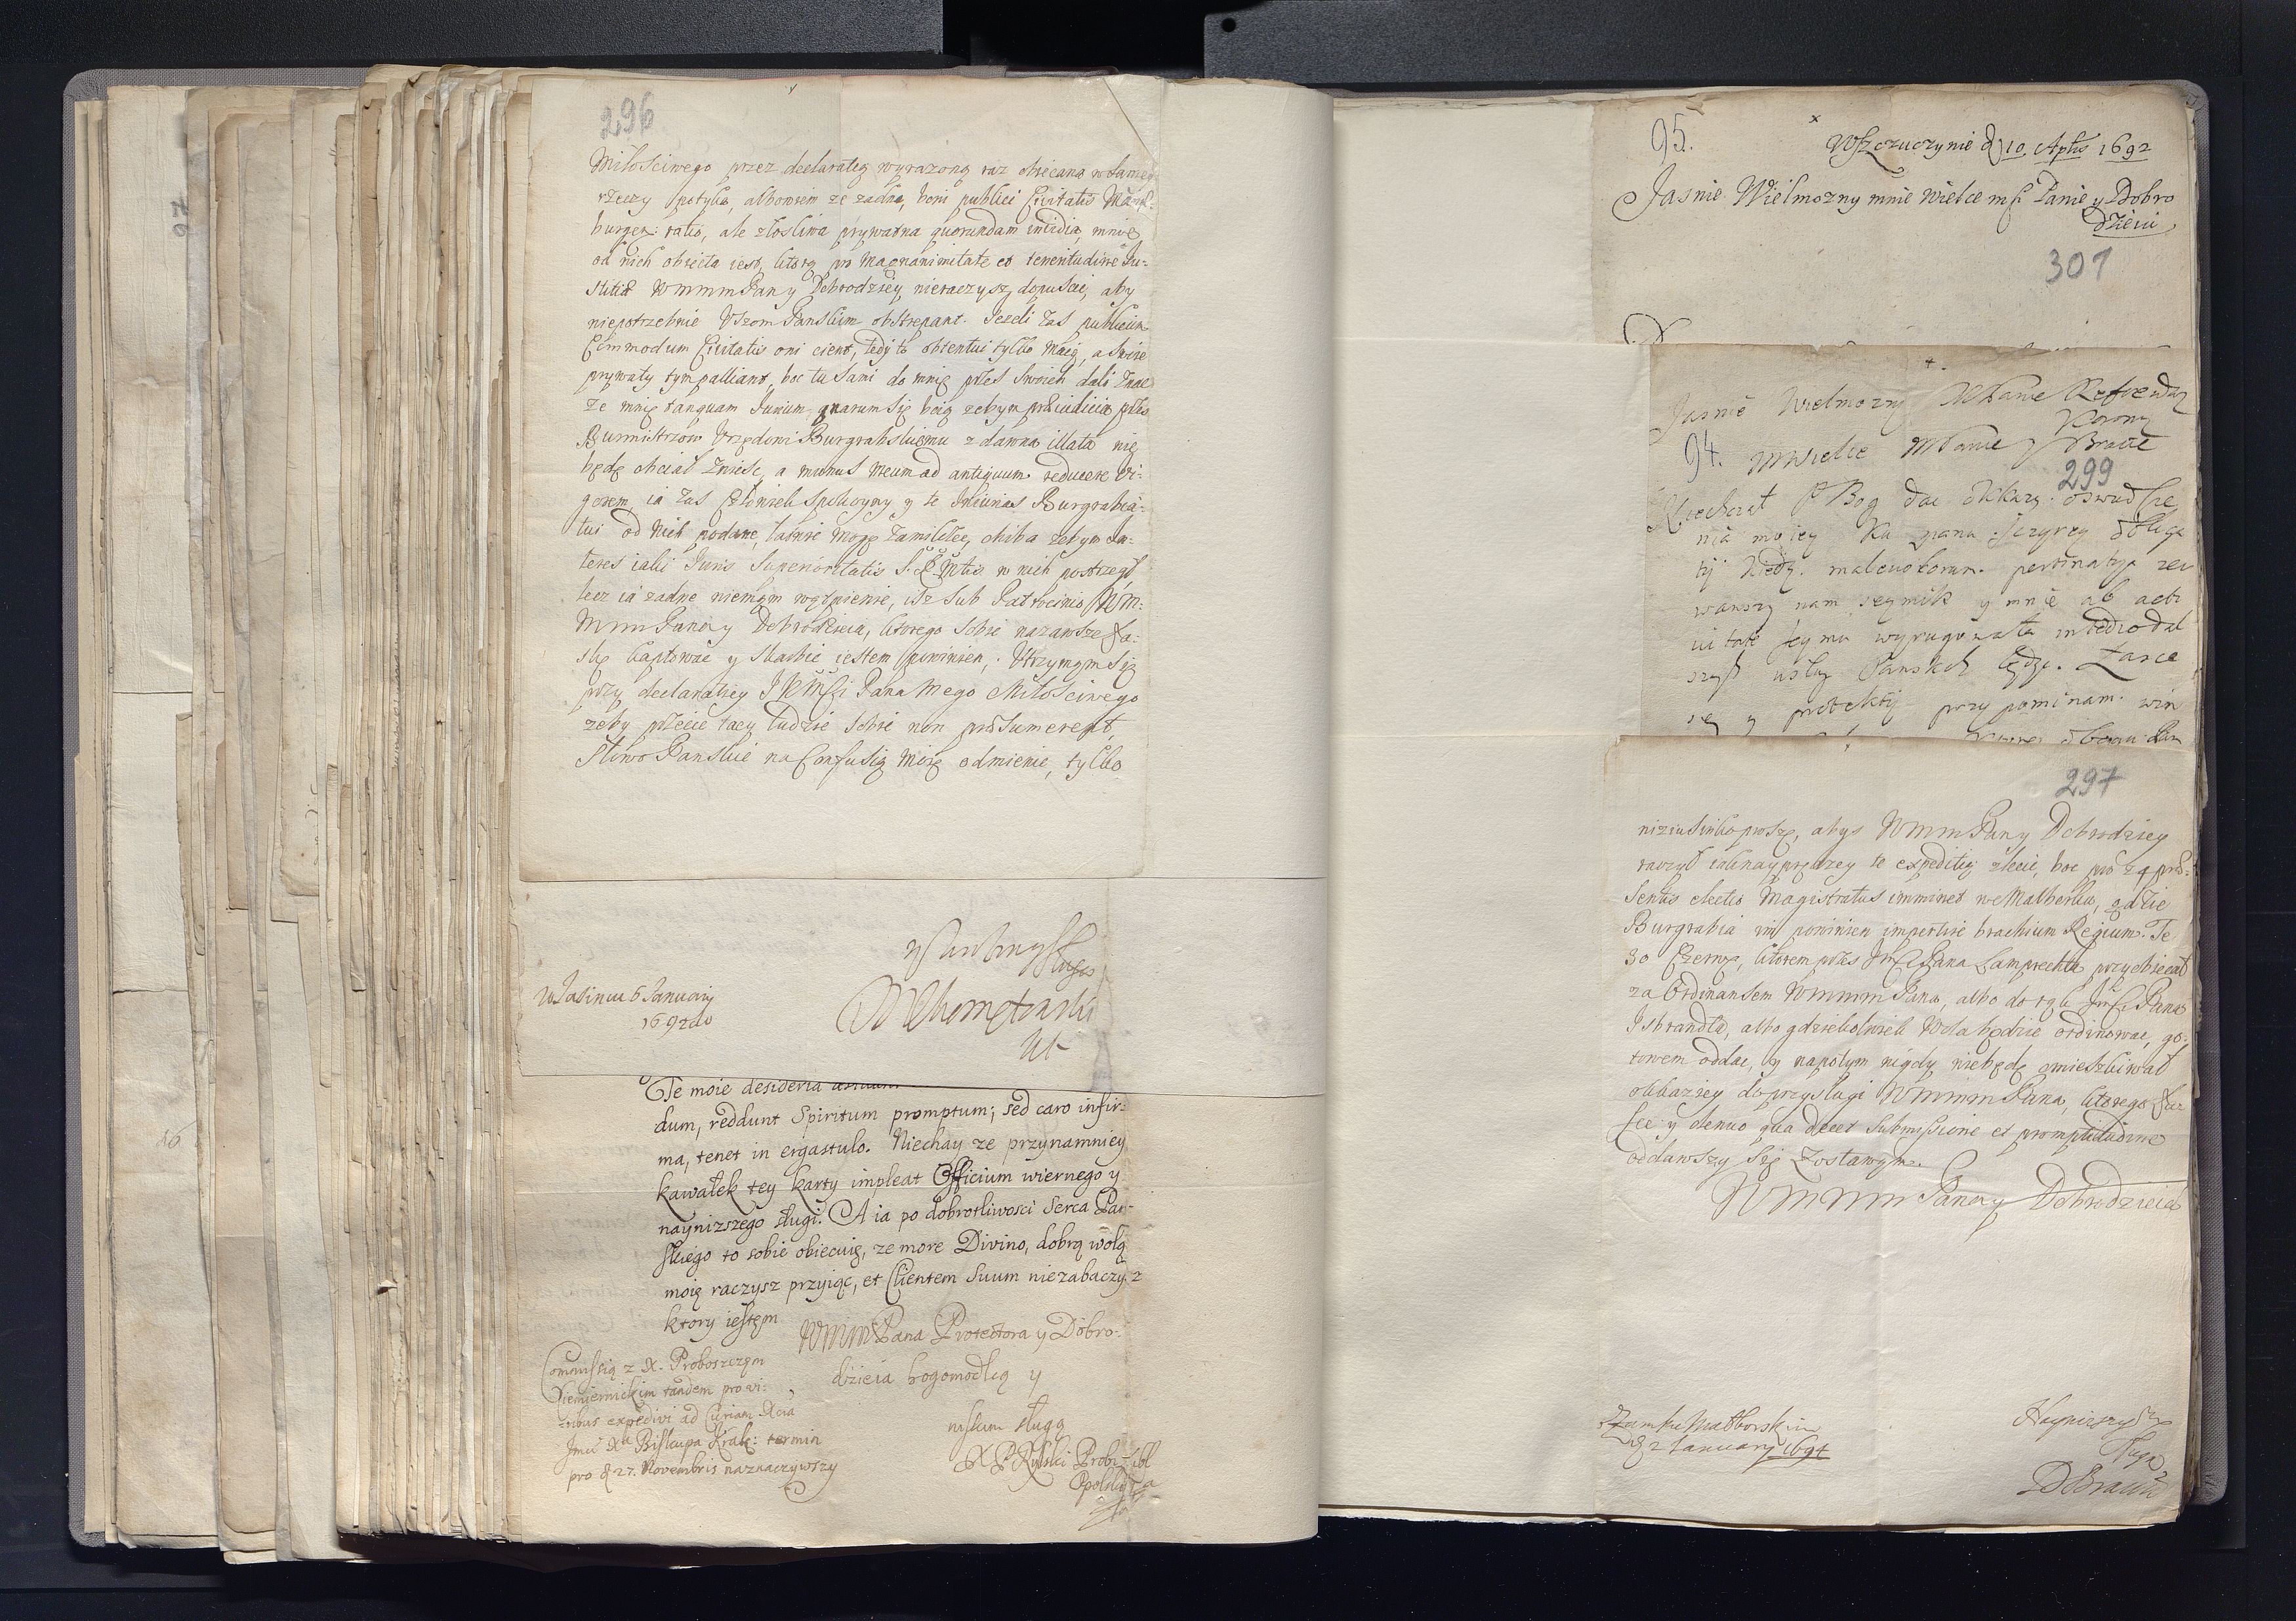 296
Miłosciwego przez declaratią wyrazoną raz obiecana w samey
rzeczy spotyka, albowiem ze zadna, boni publici Civitatis Mari-
burgen: ratio, ale złosliwa prywatna quorundam invidia, mnie
od nich obiecta iest, ktorą pro Magnanimitate et
stitiæ WMMMPan y Dobrodziey nieraczysz dopuscic, aby
niepotrzebnie Uszom Panskim obstrepant. Jezeli zas publicum
Commodum Civitatis oni cient, tedy to obtentui tylko maią, a swoie
prywaty tym palliant, boc tu sami do mnię przes swoich dali znac
ze mnię tanquam Iurium gnarum się boią zebym præiudicia przes
Burmistrzow Urzędowi Burgrabskiemu z dawna illata nię
będę chciał zniesc, a munus meum ad antiquum reducere vi-
gorem, ia zas człowiek spokoyny y te Iniurias Burgrabia-
tui od nich podane, łatwie mogę zamilclec, chiba zebym In-
teres iaki Iuris Superioritatis w nich postrzegł,
lecz ia zadne niemam wątpienie, isz sub Patrocinio WM-
MMPana y Dobrodzieia, ktorego sobie nazawsze ła-
skę kaptowac y skarbic iestem powinien, Utrzymam się
przy declaratiey JKMSci Pana Mego Miłosciwego
zeby przecie tacy ludzie sobie non præsumerent,
słowo Panskie na Confusię moię odmienic, tylko
sługa
W Jasincu 6 January
1692do
Te moie desideria
dum, reddunt Spiritum promptum; sed caro infir-
ma, tenet in ergastulo. Niechay ze przynamniey
kawałek tey karty impleat Officium wiernego y
naynizszego sługi. A ia po dobrotliwosci Serca Pan-
skiego to sobie obiecuię, ze more Divino, dobrą wolą
moię raczysz przyiąc, et Clientem Suum niezabaczysz
ktory iestęm
WMMPana Protectora y Dobro-
dzieia bogomodlcą y
niskim sługą
Commissią z X. Proboszczęm
tandem pro vi-
ribus expedivi ad Curiam Xcia
Jmci Xa Biskupa Krak: termin
pro d 27. Novembris naznaczywszy
95.
W Szczuczynie d 10 Aplis 1692
Jasnie Wielmozny mnie wielce mci Panie y Dobro
dzieiu,
301
Jasnie Wielmozny MPanie Referendarz
Koronny
94. MWielce MPanie y Bracie
299
Niechciał P Bog dac okazy oswiadcze
nia moiey ku panu szczyrey obliga
tij kiedy malevolorum pertinatia zer
wawszy nam seymik y mnie ab acti
vitate seymu wyrugowała
szych usług Panskich będę. Łasce
się y protektij przypominam
297
niziusinko proszę, abys WMMPan y Dobrodziey
raczył iaknayprędzey te expeditią zlecic, boc pro 24 præ-
sentis electio Magistratus imminet w Malborku, gdzie
Burgrabia im powinien impertire brachium Regium. Te
30 Czerw: ktorem przes JMCi Pana Lamprechta przyobiecał
za Ordinansem WMMMPana, albo do rąk JmCi Pana
Isbrandta, albo gdziekolwiek Wola będzie ordinowac, go-
towem oddac, y napotym nigdy niebędę omieszkiwał
okkaziey do przysługi WMMMPana, ktorego Łas
sce y denuo qua decet submissione et promptitudine
oddawszy się Zostawam.
WMMMPana y Dobrodzieia
Z Zamku Malborskim
d 2 January 1694
Naynizszy
sługa